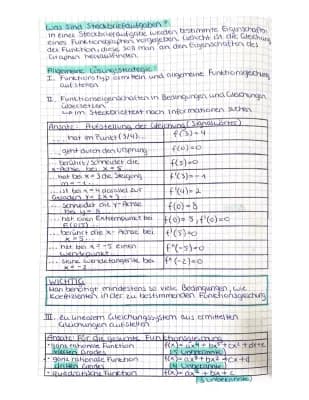 Was sind Steckbriefaufgaben?
In einer Steckbriefaufgabe werden bestimmte Eigenschaften
eines Funktionsgraphen vorgegeben. Gesucht ist die Gleichung
der Funktion, diese soll man an den Eigenschaften des
Graphen herausfinden.
Allgemeine Lösungsstrategie:
I. Funktionstyp ermitteln und allgemeine Funktionsgleichung
aufstellen
II. Funktionseigenschaften in Bedingungen und Gleichungen
übersetzen
↳ im Steckbrieftext nach Informationen suchen
Ansatz: Aufstellung der Gleichung (Signalwörter)
...hat im Punkt (3/4)... f(3)=4
...geht durch den Ursprung f(0)=0
...berührt/schneidet die
x-Achse bei x=5... f(5)=0
...hat bei x=3 die Steigung
m=-1... f'(3)=-1
...ist bei x=4 parallel zur
Geraden y=2x+... f'(4)=2
...schneidet die y-Achse
bei y=8 f(0)=8
...hat einen Extrempunkt bei
E(0/5)... f(0)=5, f'(0)=0
...berührt die x-Achse bei
x=5... f'(5)=0
...hat bei x=-5 einen
Wendepunkt... f''(-5)=0
...seine Wendetangente bei
x=-2 f''(-2)=0
WICHTIG
Man benötigt mindestens so viele Bedingungen, wie
Koeffizienten in der zu bestimmenden Funktionsgleichung
III. zu linearem Gleichungssystem aus ermittelten
Gleichungen aufstellen
Ansatz: Für die gesamte Funktionsgleichung
• ganz rationale Funktion f(x)=ax⁴+bx³+cx²+dx+e
vierten Grades (5 Unbekannte)
• ganz rationale Funktion f(x)=ax³+bx²+cx+d
dritten Grades (4 Unbekannte)
• quadratische Funktion f(x)=ax²+bx+c
(3 Unbekannte)